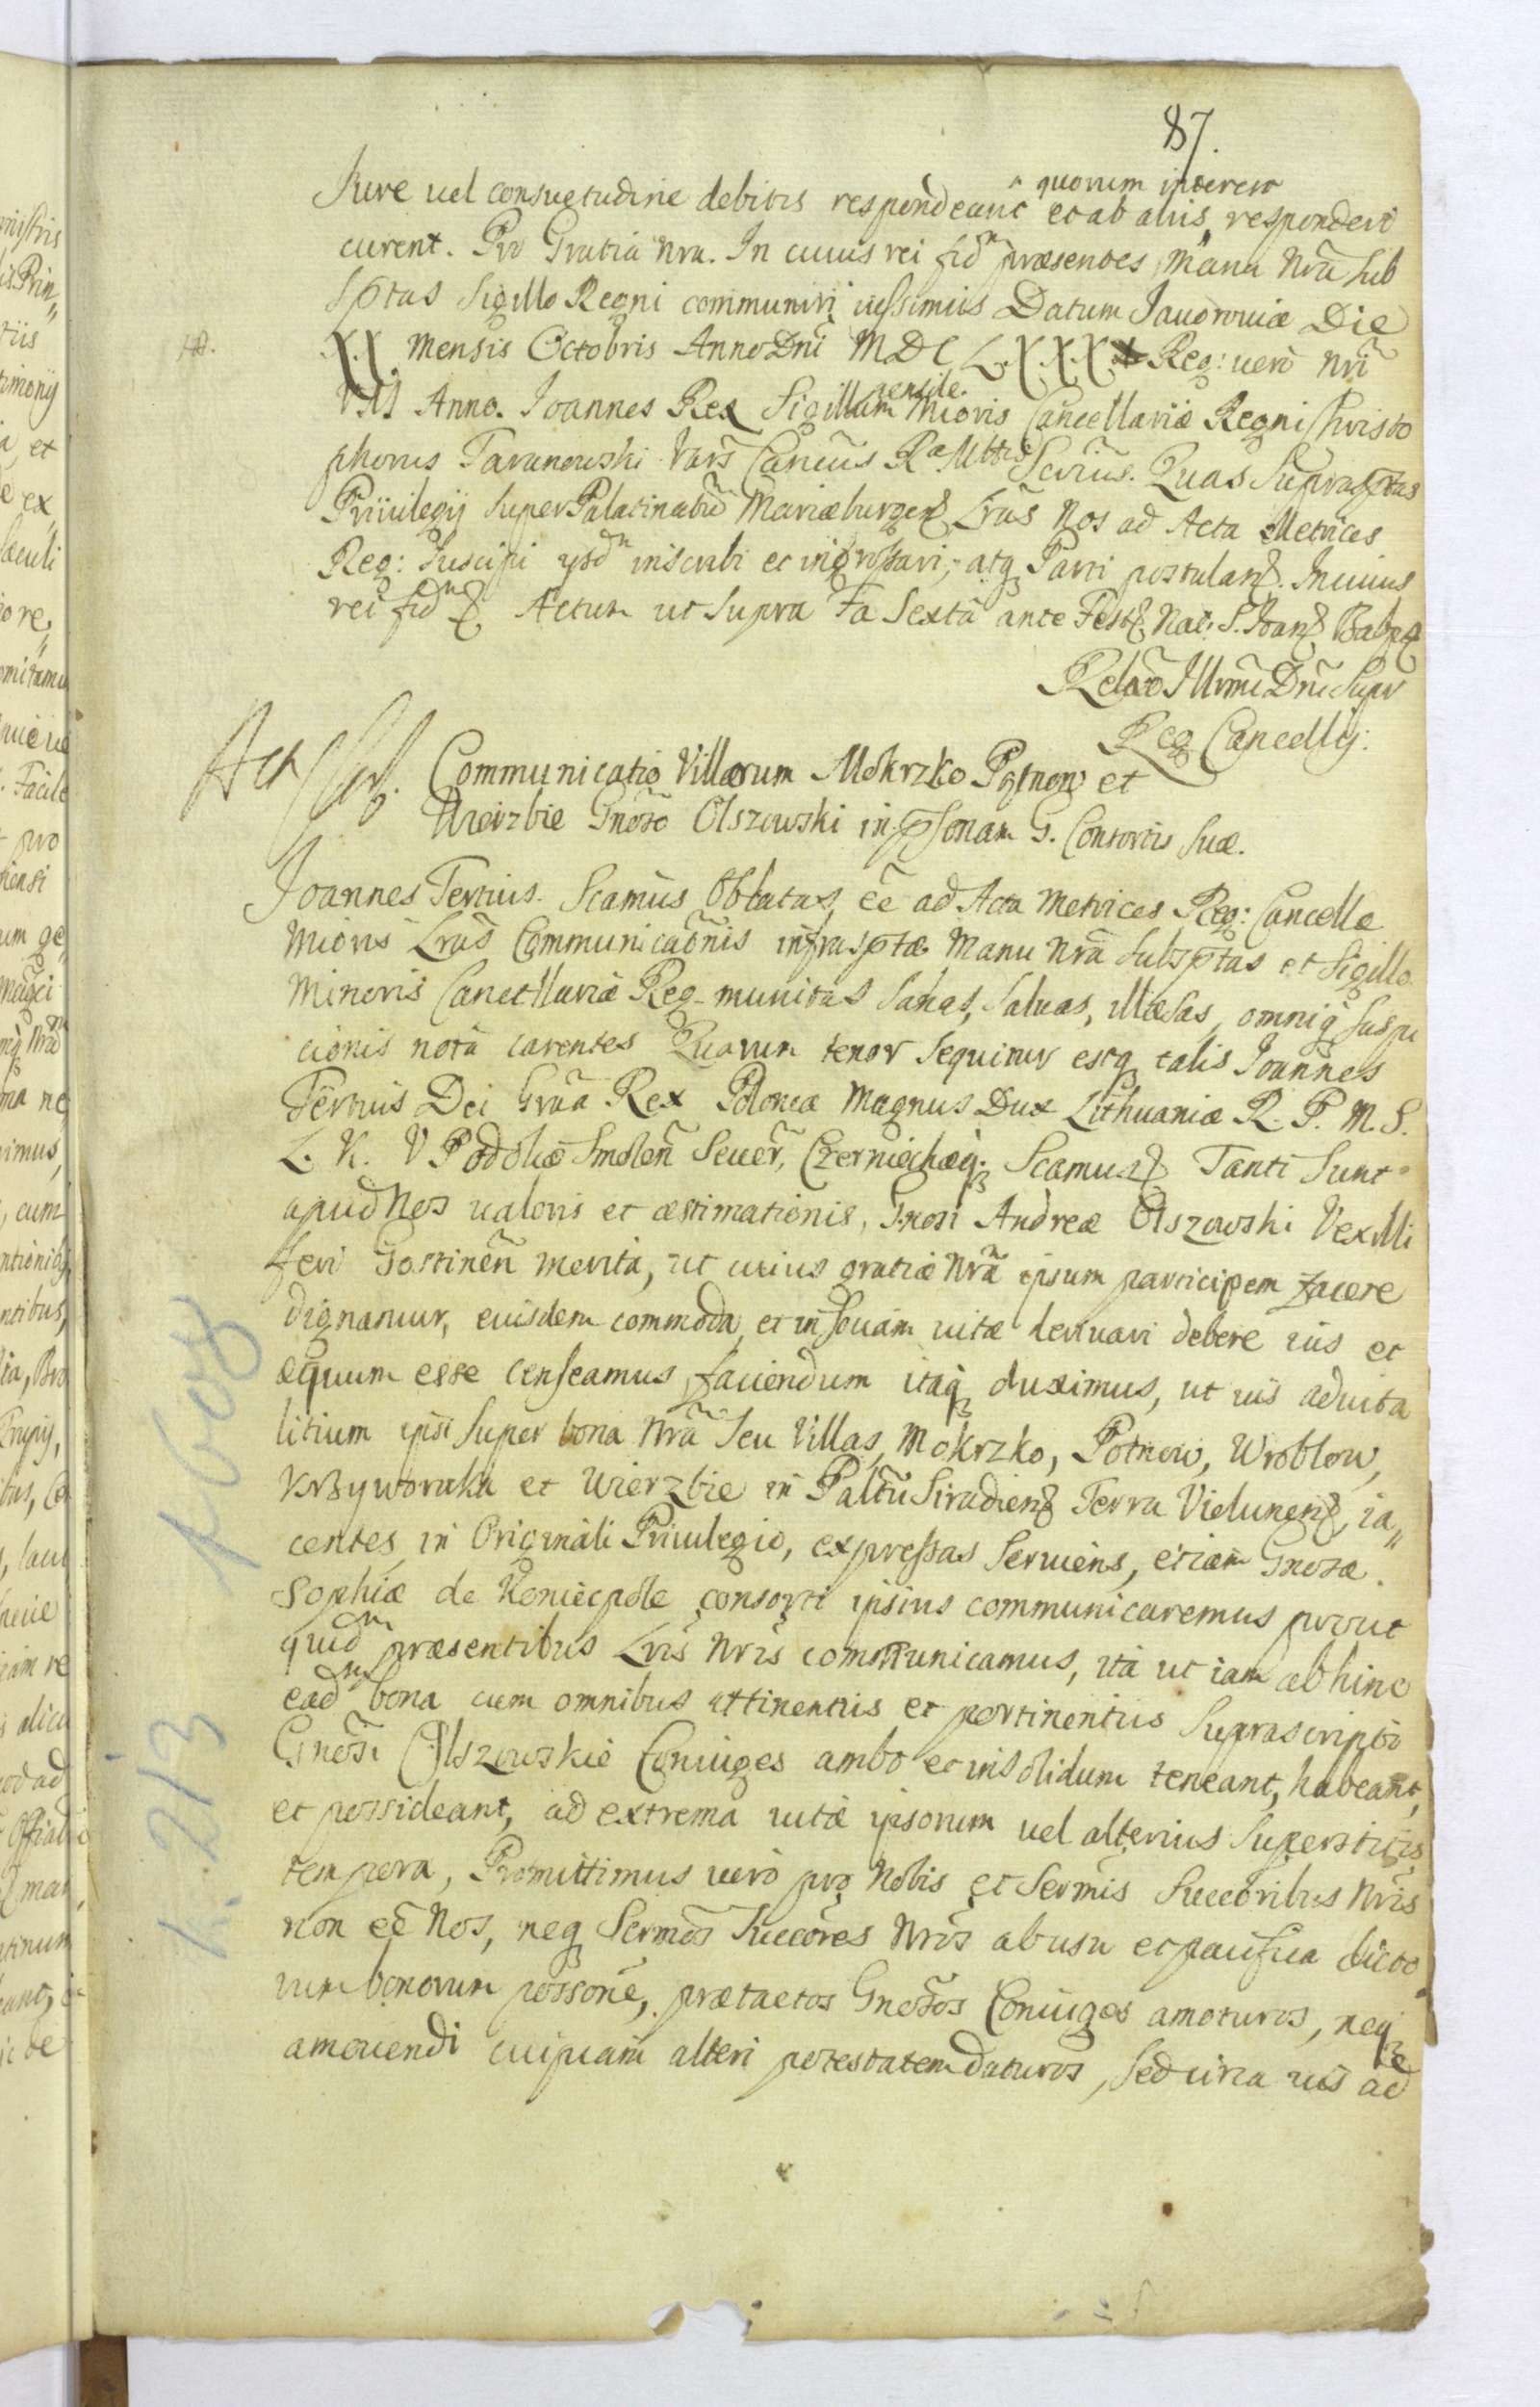 87.
quorum interest
Iure uel consvetudine debitis respondeant et ab aliis, responderi
curent. Pro Gratia nra. In cuius rei fidm præsentes manu nrã sub
sptas Sigillo Regni communiri iussimus Datum Iavoroviæ Die
XX mensis Octobris Anno Dni MDCLXXX Reg: uero nri
VII Anno. Joannes Rex Sigillum pensile Mioris Cancellariæ Regni Christo
phorus Taranowski Vars Cancus Ræ Mttis Scrius. Quas Suprasptas
Priuilegij super Palatinatũ Mariæburgen Lras Nos ad Acta Metrices
Reg: Suscipi ysdm inscribi et ingrossari, atq Parti postulan. In cuius
rei fidm Actum ut supra Fa Sexta ante Fest Nat: S. Ioan Bapt
Relão Illrmi Dni Supr
Reg Cancellij:
Communicatio Villarum Mokrzko Potnow et
Wierzbie Gnoso Olszowski in psonam G. Consortis Suæ.
Joannes Tertius. Scamus Oblatas eẽ ad Acta Metrices Reg: Cancellæ
Mioris Lras Communicãonis infrasptæ Manu nrã subsptas et Sigillo
Minoris Cancellariæ Reg munitas Sanas, Saluas, illæsas, omniq suspi
cionis notã carentes Quarum tenor Sequitur estq talis Joannes
Tertius Dei Grãa Rex Poloniæ Magnus Dux Lithuaniæ R. P. M. S.
L. K. V Podoliæ Smolen Seuer, Czerniechæq. Scamus Tanti Sunt
apud Nos ualoris et æstimationis, Gnosi Andreæ Olszowski Vexilli
feri Gostinen merita, ut cuius gratiæ nrã ipsum participem facere
dignamur, eiusdem commoda et in sociam uitæ deriuari debere ius et
æquum esse censeamus, faciendum itaq duximus, ut ius aduita
litium ipsi super bona nrã seu Villas, Mokrzko, Potnow, Wroblow,
Krzyworzka et Wierzbie in Paltũ Siradien Terra Vielunen, ia
centes, in Originali Priuilegio, expressas Seruiens, etiam Gnosæ
Sophiæ de Koniecpole consorti ipsius communicaremus prout
quidm præsentibus Lris nris communicamus, ita ut iam ab hinc
eadm bona cum omnibus attinentiis et pertinentiis Suprascripti
Gnosi Olszowskie Coniuges ambo et insolidum teneant, habeant,
et possideant, ad extrema uitæ ipsorum uel alterius Superstitis
tempora, Promittimus uero pro Nobis et Sermis Succoribus nris
non eẽ Nos, neq Sermos Succores nros abusu et pacifica dicto
rum bonorum possone, prætactos Gnosos Coniuges amoturos, neq
amouendi cuipiam alteri potestatem daturos, sed circa ius ad